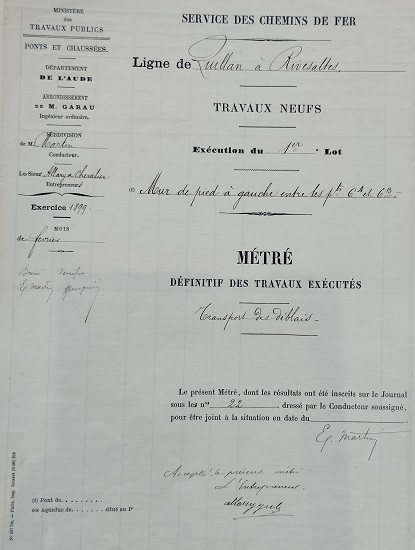 MINISTÈRE
des
TRAVAUX PUBLICS
PONTS ET CHAUSSÉES.
DÉPARTEMENT
DE L'AUDE
ARRONDISSEMENT
DE M. GARAU
Ingénieur ordinaire.
SUBDIVISION
de M. Martin
Conducteur.
Les Sieurs Allary & Chevalier
Entrepreneurs
Exercice 1899.
MOIS
de février
SERVICE DES CHEMINS DE FER
Ligne de Quillan à Rivesaltes.
TRAVAUX NEUFS
Exécution du 1er Lot
(1) Mur de pied à gauche entre les pts 6A et 6B
MÉTRÉ
DÉFINITIF DES TRAVAUX EXÉCUTÉS
Transport des déblais
Le présent Métré, dont les résultats ont été inscrits sur le Journal
sous les nos 22 dressé par le Conducteur soussigné,
pour être joint à la situation en date du
Ep. Martin
Accepté le présent métré
L'Entrepreneur
(1) Pont de
ou Aqueduc de situé au Pt